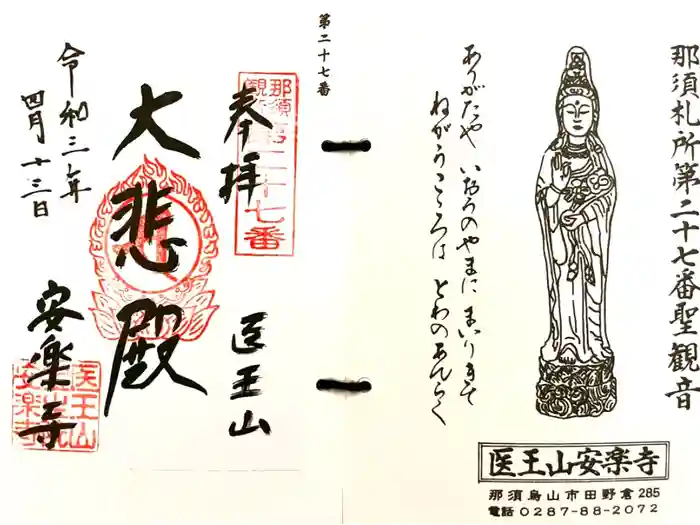 那須札所第二十七番聖観音
ありがたや いおうのやまに まいりきて
ねがうこころは とわのあんらく
医王山安楽寺
那須烏山市田野倉285
電話0287-88-2072
第二十七番
奉拝
医王山
大悲殿
令和三年
四月十三日
安楽寺
那須
第二十七番
医王山
安楽寺